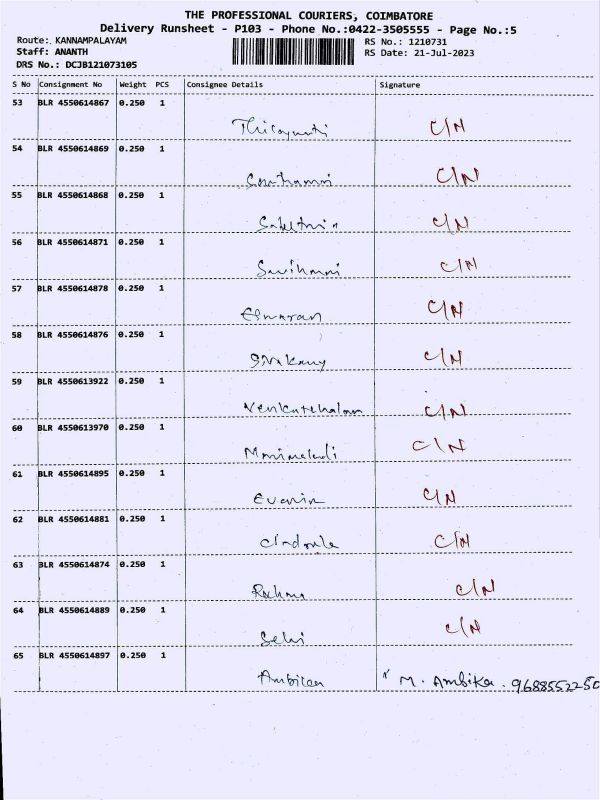 THE PROFESSIONAL COURIERS, COIMBATORE
Delivery Runsheet - P103 - Phone No.:0422-3505555 - Page No.:5
Route:. KANNAMPALAYAM
RS No.: 1210731
Staff: ANANTH
RS Date: 21-Jul-2023
DRS No.: DCJB121073105
S No Consignment No Weight PCS Consignee Details Signature
53 BLR 4550614867 0.250 1
C/N
54 BLR 4550614869 0.250 1
C/N
55 BLR 4550614868 0.250 1
C/N
56 BLR 4550614871 0.250 1
C/N
57 BLR 4550614878 0.250 1
C/N
58 BLR 4550614876 0.250 1
C/N
59 BLR 4550613922 0.250 1
Venkatehalam C/N
60 BLR 4550613970 0.250 1
C/N
61 BLR 4550614895 0.250 1
C/N
62 BLR 4550614881 0.250 1
C/N
63 BLR 4550614874 0.250 1
C/N
64 BLR 4550614889 0.250 1
Selvi C/N
65 BLR 4550614897 0.250 1
M. Ambika. 9688552250